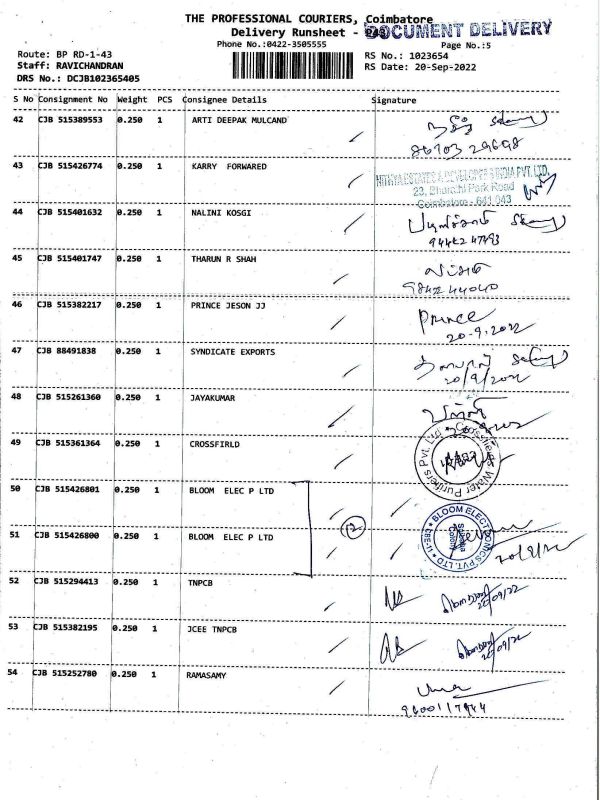 THE PROFESSIONAL COURIERS, Coimbatore
DOCUMENT DELIVERY
Delivery Runsheet -
Phone No.:0422-3505555
Page No.:5
Route: BP RD-1-43
RS No.: 1023654
Staff: RAVICHANDRAN
RS Date: 20-Sep-2022
DRS No.: DCJB102365405
S No Consignment No Weight PCS Consignee Details Signature
42 CJB 515389553 0.250 1 ARTI DEEPAK MULCAND
86703 29698
43 CJB 515426774 0.250 1 KARRY FORWARED
NITHYA ESTATES & DEVELOPERS INDIA PVT. LTD.
23, Bharathi Park Road
Coimbatore - 641 043
44 CJB 515401632 0.250 1 NALINI KOSGI
45 CJB 515401747 0.250 1 THARUN R SHAH
46 CJB 515382217 0.250 1 PRINCE JESON JJ
Prince
20-9-2022
47 CJB 88491838 0.250 1 SYNDICATE EXPORTS
20/9/2022
48 CJB 515261360 0.250 1 JAYAKUMAR
49 CJB 515361364 0.250 1 CROSSFIRLD
Crossfields Water Purifiers Pvt. Ltd.
50 CJB 515426801 0.250 1 BLOOM ELEC P LTD
12
BLOOM ELECTRONICS PVT. LTD
51 CJB 515426800 0.250 1 BLOOM ELEC P LTD
52 CJB 515294413 0.250 1 TNPCB
20/09/22
53 CJB 515382195 0.250 1 JCEE TNPCB
20/09/22
54 CJB 515252780 0.250 1 RAMASAMY
Uma